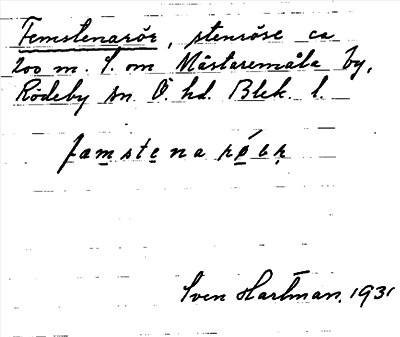 Femstenarör, stenröse ca
200 m. S. om Mästaremåla by,
Rödeby sn Ö. hd. Blek. l.
Sven Hartman, 1931